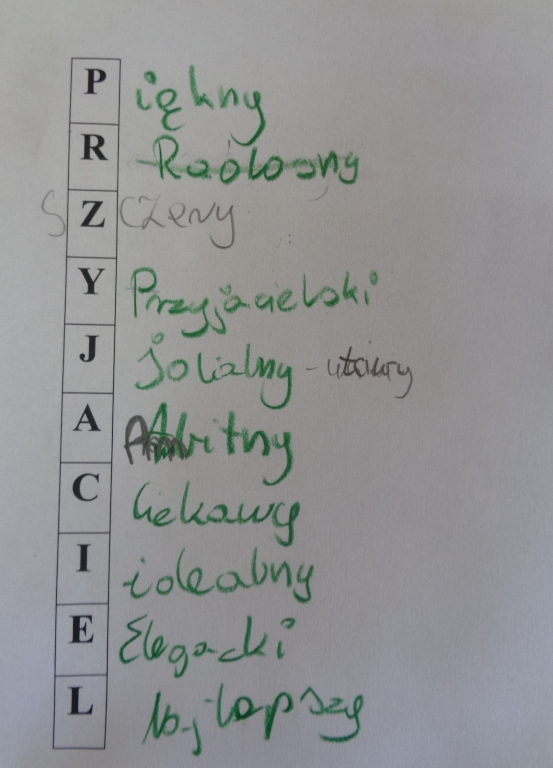 P iękny
R Radosny
S Z CZeny
Y Przyjacielski
J jolialny -
A Ambitny
C Ciekawy
I idealny
E Elegacki
L Najlepszy